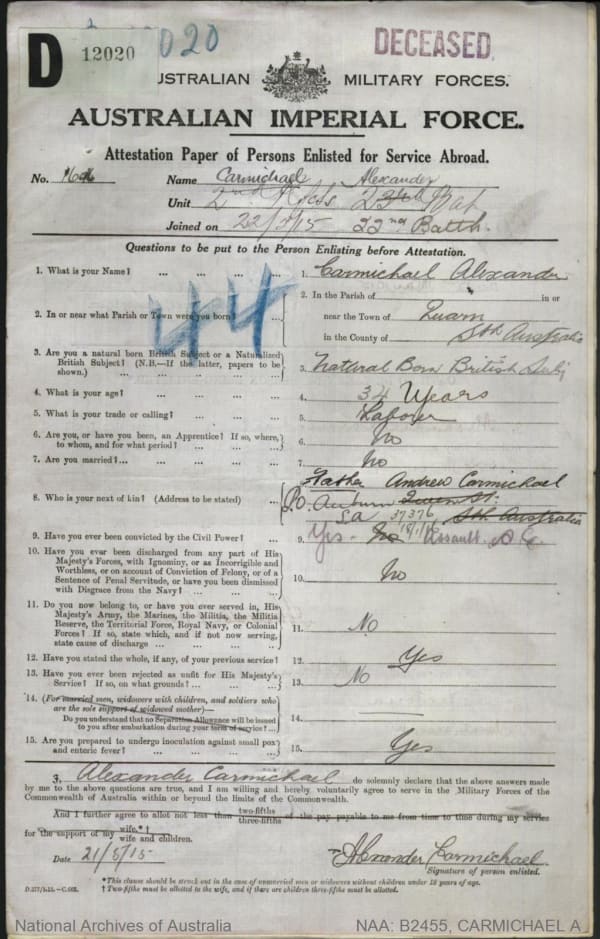 D
12020
2020
DECEASED.
AUSTRALIAN MILITARY FORCES.
AUSTRALIAN IMPERIAL FORCE.
Attestation Paper of Persons Enlisted for Service Abroad.
No. Name Carmichael Alexander
Unit 2nd 23rd
Joined on 22nd Batth.
Questions to be put to the Person Enlisting before Attestation.
44
1. What is your Name? ... ... ... ... 1. Carmichael Alexander
2. In or near what Parish or Town were you born? ... 2. In the Parish of in or
near the Town of
in the County of Sth Australia
3. Are you a natural born British Subject or a Naturalized
British Subject? (N.B.—If the latter, papers to be
shown.) ... ... ... ... 3. Natural Born British Subj
4. What is your age? ... ... ... ... 4. 34 Years
5. What is your trade or calling? ... ... ... 5. Laborer
6. Are you, or have you been, an Apprentice? If so, where,
to whom, and for what period? ... ... ... 6. No
7. Are you married?... ... ... ... 7. No
8. Who is your next of kin? (Address to be stated) ... 8. Father Andrew Carmichael
P.O. Auburn Queen St.
SA 37376 Sth Australia
9. Have you ever been convicted by the Civil Power? ... 9. Yes - No Assault
10. Have you ever been discharged from any part of His
Majesty's Forces, with Ignominy, or as Incorrigible and
Worthless, or on account of Conviction of Felony, or of a
Sentence of Penal Servitude, or have you been dismissed
with Disgrace from the Navy? ... ... ... 10. No
11. Do you now belong to, or have you ever served in, His
Majesty's Army, the Marines, the Militia, the Militia
Reserve, the Territorial Force, Royal Navy, or Colonial
Forces? If so, state which, and if not now serving,
state cause of discharge ... ... ... 11. No
12. Have you stated the whole, if any, of your previous service? 12. Yes
13. Have you ever been rejected as unfit for His Majesty's
Service? If so, on what grounds? ... ... ... 13. No
14. (For married men, widowers with children, and soldiers who
are the sole support of widowed mother)—
Do you understand that no Separation Allowance will be issued
to you after embarkation during your term of service? ... 14.
15. Are you prepared to undergo inoculation against small pox
and enteric fever? ... ... ... ... 15. Yes
I, Alexander Carmichael do solemnly declare that the above answers made
by me to the above questions are true, and I am willing and hereby voluntarily agree to serve in the Military Forces of the
Commonwealth of Australia within or beyond the limits of the Commonwealth.
And I further agree to allot not less than two-fifths three-fifths of the pay payable to me from time to time during my service
for the support of my wife.*† wife and children.
Date 21/5/15 Alexander Carmichael
Signature of person enlisted.
*This clause should be struck out in the case of unmarried men or widowers without children under 18 years of age.
† Two-fifths must be allotted to the wife, and if there are children three-fifths must be allotted.
National Archives of Australia NAA: B2455, CARMICHAEL A